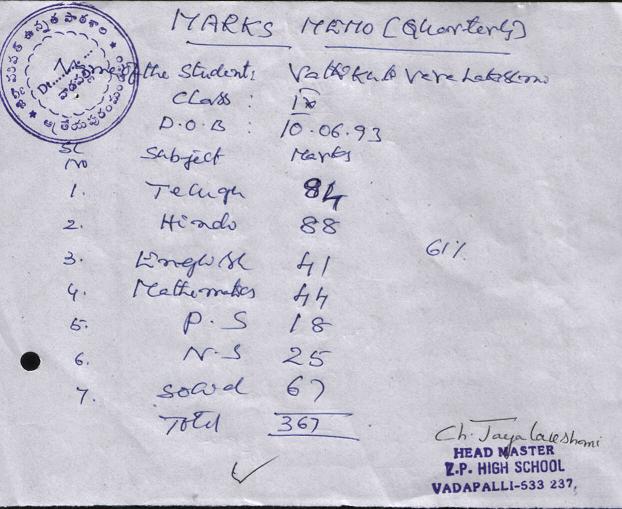 MARKS MEMO (Quarterly)
of the Student:
Class : IX
D.O.B : 10.06.93
SL NO Subject Marks
1. Telugu 84
2. Hindi 88
3. English 41
4. Mathematics 44
5. P.S 18
6. N.S 25
7. social 67
Total 367
61%
Ch. Jayalakshmi
HEAD MASTER
Z.P. HIGH SCHOOL
VADAPALLI-533 237,